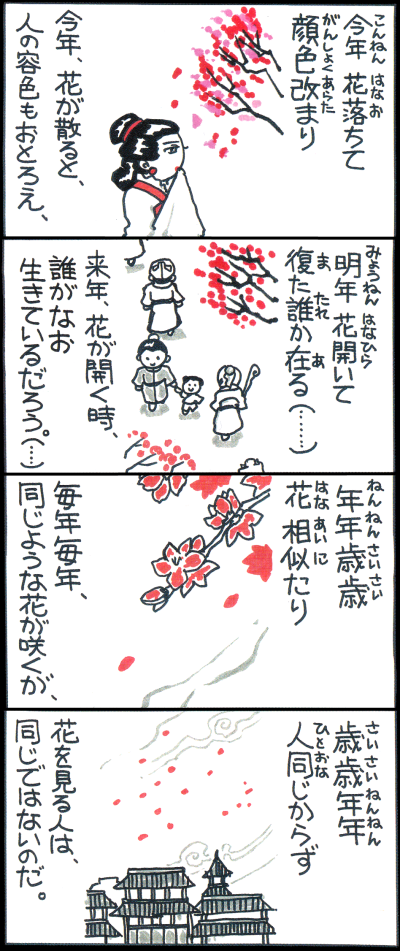 こんねん はな お
今年 花落ちて
がんしょくあらた
顔色改まり
今年、花が散ると、
人の容色もおとろえ、
みょうねん はなひら
明年 花開いて
ま たれ あ
復た誰か在る(……)
来年、花が開く時、
誰がなお
生きているだろう。(…)
ねんねんさいさい
年年歳歳
はな あい に
花 相似たり
毎年毎年、
同じような花が咲くが、
さいさいねんねん
歳歳年年
ひとおな
人同じからず
花を見る人は、
同じではないのだ。